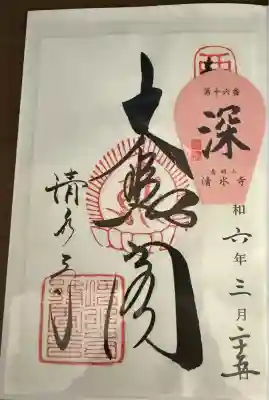 西
第十六番
深
音羽山
清水寺
和六年三月二十五日
大悲閣
清水寺